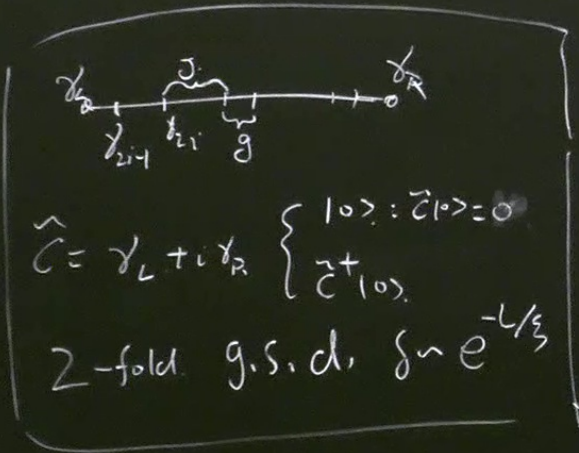 J
γ_L γ_R
γ_{2i-1} γ_{2i} g
ĉ = γ_L + iγ_R { |0⟩ : c̃|0⟩ = 0
c̃⁺|0⟩.
2-fold g.s.d. δ ~ e^{-L/ξ}